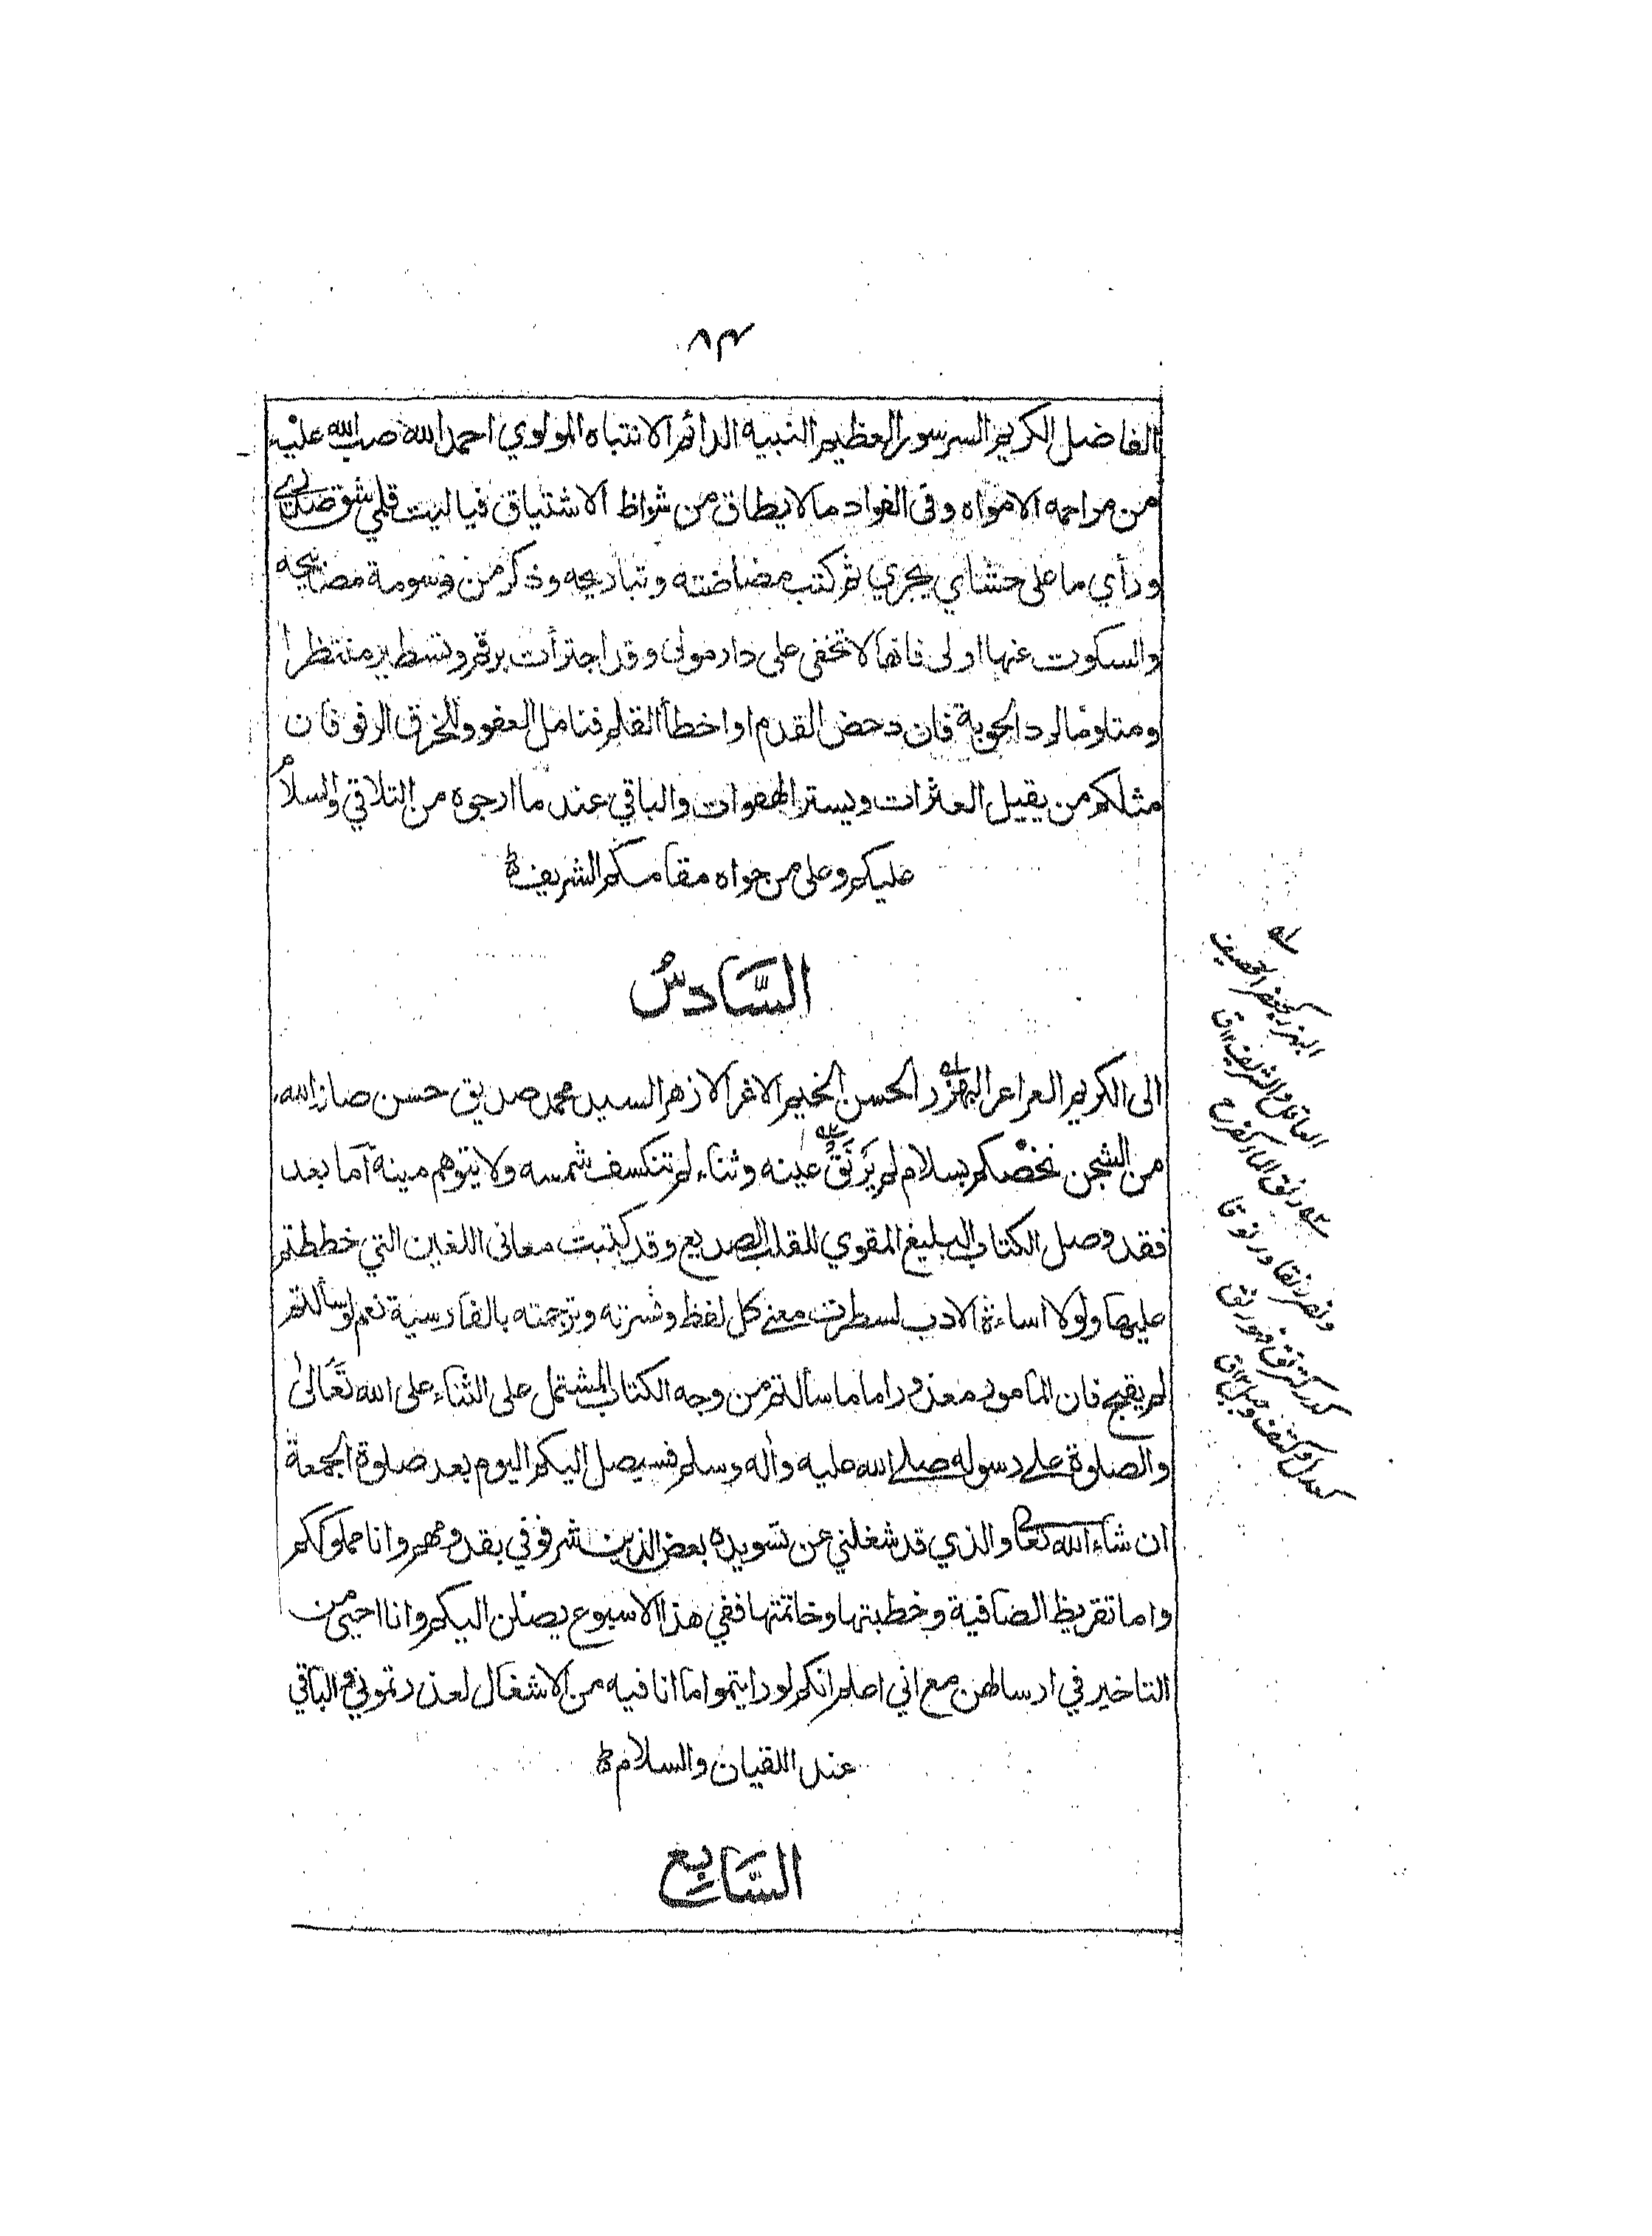 ۸۴
الفاضل الكريم السرسور العظيم النبيه الدائم الانتباه المولوي احمد الله صب الله عليه
من مراحمه الامواه وفى الفواد مالايطاق من شواظ الاشتياق فياليت قلمي شق صدري
ورأي ما على حشاي يجري ثم كتب مضاضته وتباريحه وذكر من
والسكوت عنها اولى فانها لا تخفى على دار مولى وقد اجترأت برقم وتسطير منتظرا
ومتلوما لرد الجوبة فان دحض القدم او اخطأ القلم فنامل العفو وللخرق الرفو فان
مثلكم من يقيل العثرات ويستر الهفوات والباقي عند ما ارجوه من التلاقي والسلام
عليكم وعلى من حواه مقامكم الشريف
السَّادسُ
الى الكريم العراعر البهزر الحسن الخيم الاغر الازهر السيد محمد صديق حسن صانه الله
من الشجن نخصكم بسلام لم يَرْنَقْ عينه وثناء لم تنكسف شمسه ولا يتوهم مينه اما بعد
فقد وصل الكتاب البليغ المقوي للقلب الصديع وقد كتبت معانى اللغين التي خططتم
عليها ولولا اساءة الادب لسطرت معنى كل لفظ وشرته وترجمته بالفارسية نعم لو سألتم
لم يقبح فان المامور معذور اما ما سألتم من وجه الكتاب المشتمل على الثناء على الله تَعَالىٰ
والصلوة على رسوله صلى الله عليه واله وسلم فسيصل اليكم اليوم بعد صلوة الجمعة
ان شاء الله تعا والذي قد شغلني عن تسويده بعض الذين شرفوني بقدومهم وانا مملوككم
واما تقريظ الضافية وخطبتها وخاتمتها ففي هذا الاسبوع يصلن اليكم وانا احيى من
التاخير في ارسالهن مع اني اعلم انكم لو رايتموا ما انا فيه من الاشغال لعذرتموني والباقي
عند اللقيان والسلام
السَّابِع
البهزر كجعفر الحصيف
العاقل والشريف ۱۲ ق
رنق الماء كفرح
ونصر رنقا ورنوقا
كدر كترنق فهو رنق
كعدل وكتف وجبل ۱۲ ق